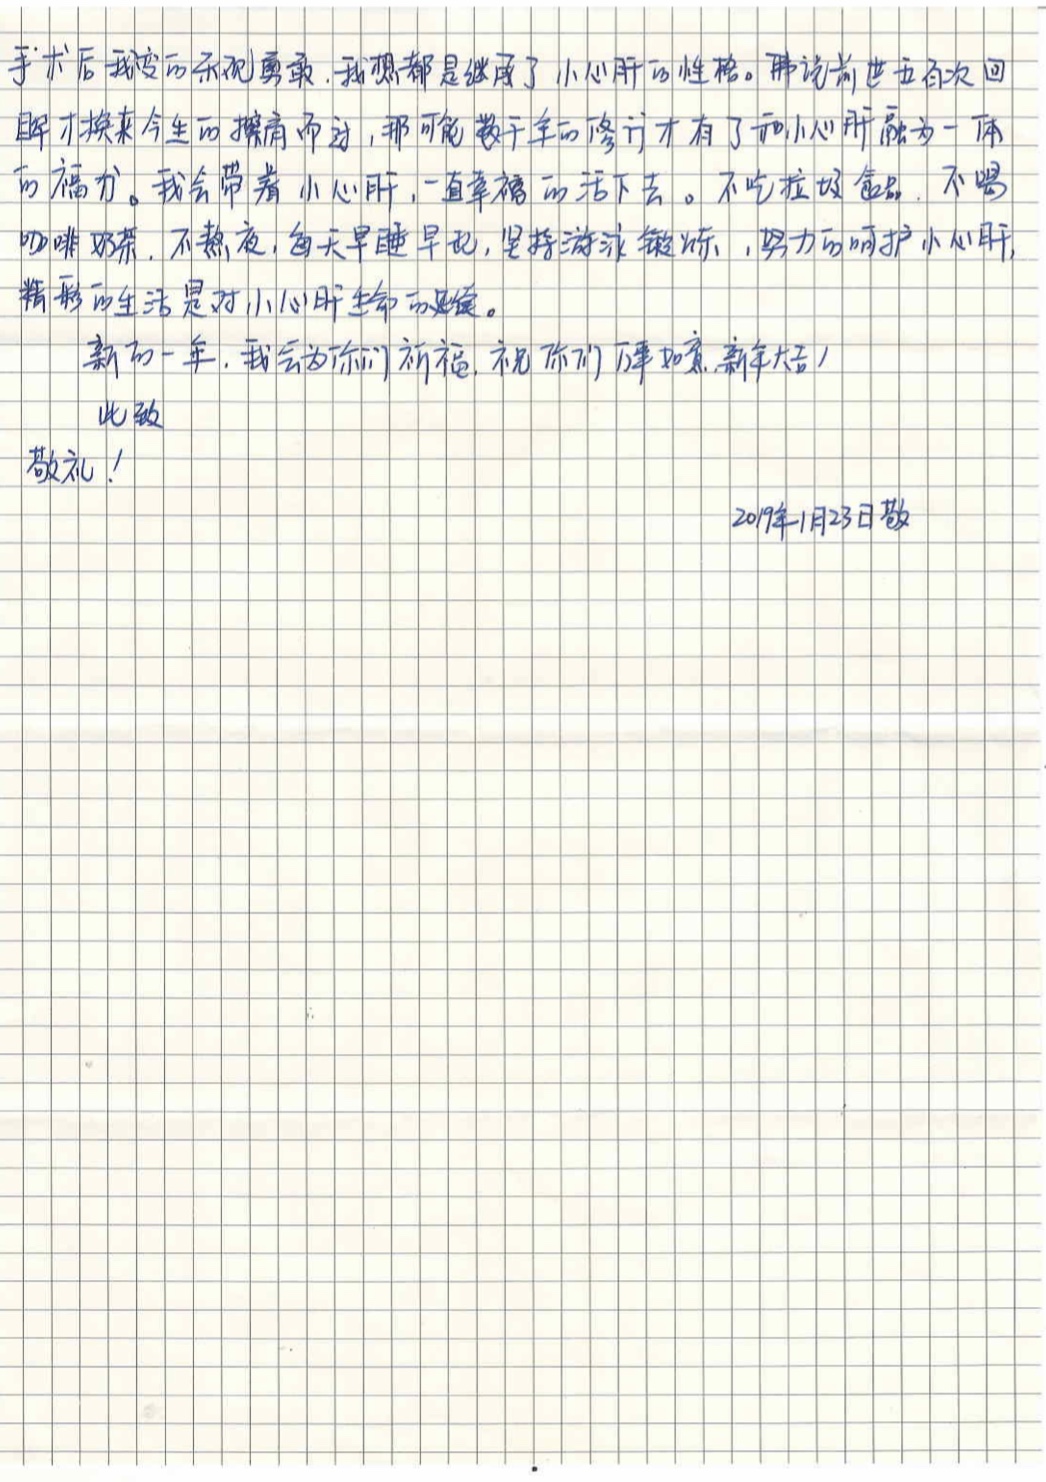 手术后我变的乐观勇敢，我想都是继承了小心肝的性格。佛说前世五百次回
眸才换来今生的擦肩而过，那可能数千年的修行才有了和小心肝融为一体
的福分。我会带着小心肝，一直幸福的活下去。不吃垃圾食品，不喝
咖啡奶茶，不熬夜，每天早睡早起，坚持游泳锻炼，努力的呵护小心肝，
精彩的生活是对小心肝生命的延续。
新的一年，我会为你们祈福，祝你们万事如意，新年大吉！
此致
敬礼！
2019年1月23日敬